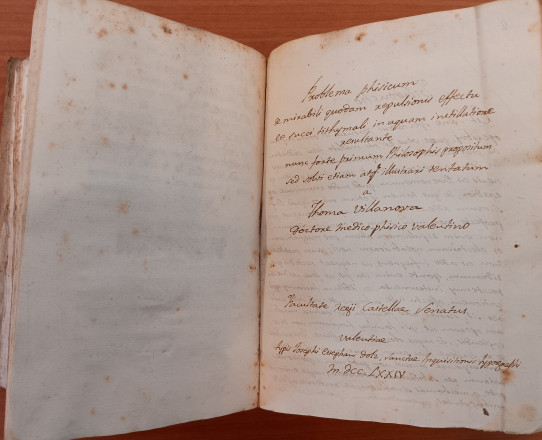 Problema phisicum
e mirabili quodam repulsionis effectu
ex succi tithymali in aquam instillatione
resultante
nunc forte primum Philosophis propositum
sed solvi etiam atq illustrari tentatum
a
Thoma Villanova
Doctore medico-phisico valentino
Facultate Castellae Senatus
Valentiae
typis Josephi Stephani Dolz, Sanctae Inquisitionis typographi
M.DCC.LXXIV